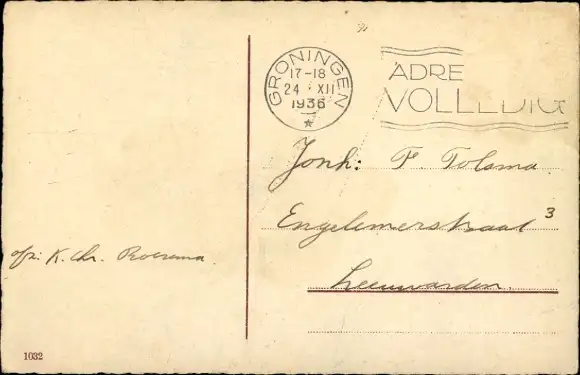 GRONINGEN
17-18
24 XII
1936
ADRE
VOLLEDIG
Jonh: F. Tolsma
Engelemerstraat 3
Leeuwarden.
afz: K. Chr. Roersma
1032